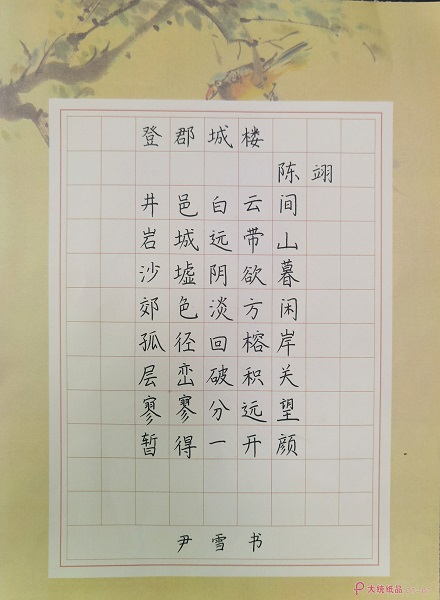 登郡城楼
陈翊
井邑白云间
岩城远带山
沙墟阴欲暮
郊色淡方闲
孤径回榕岸
层峦破积关
寥寥分远望
暂得一开颜
尹雪书
大统纸品